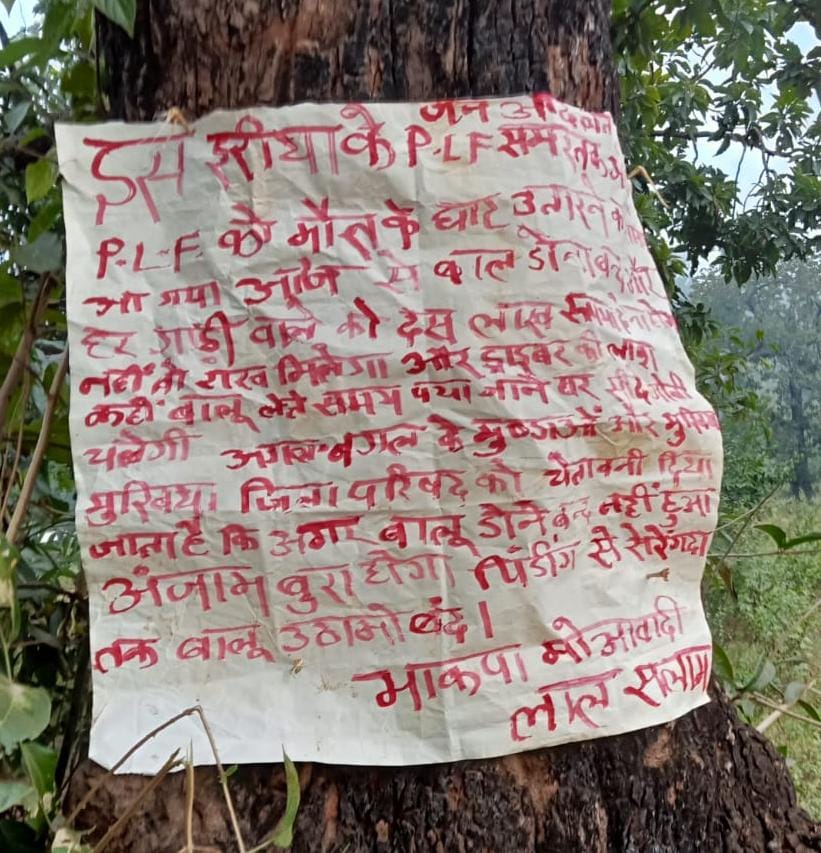 जन अदालत
इस इरीया के P.L.F समर्तक
P.L.F. को मौत के घाट उतारने
आ गया आज से बालू ढोना बंद और
हर गाड़ी वाले को दस लाख रूपया देना होगा
नहीं तो राख मिलेगा और ड्राइवर की लाश
कहीं बालू लेते समय पया जाने पर सीधे गोली
चलेगी अगल-बगल के मुण्डाओं और मुखिया
मुखिया जिला परिषद को चेतावनी दिया
जाता है कि अगर बालू ढोने बन्द नहीं हुआ
अंजाम बुरा होगा पिंडींग से सेरेंगदा
तक बालू उठाओ बंद।
माकपा मोआवादी
लाल सलाम